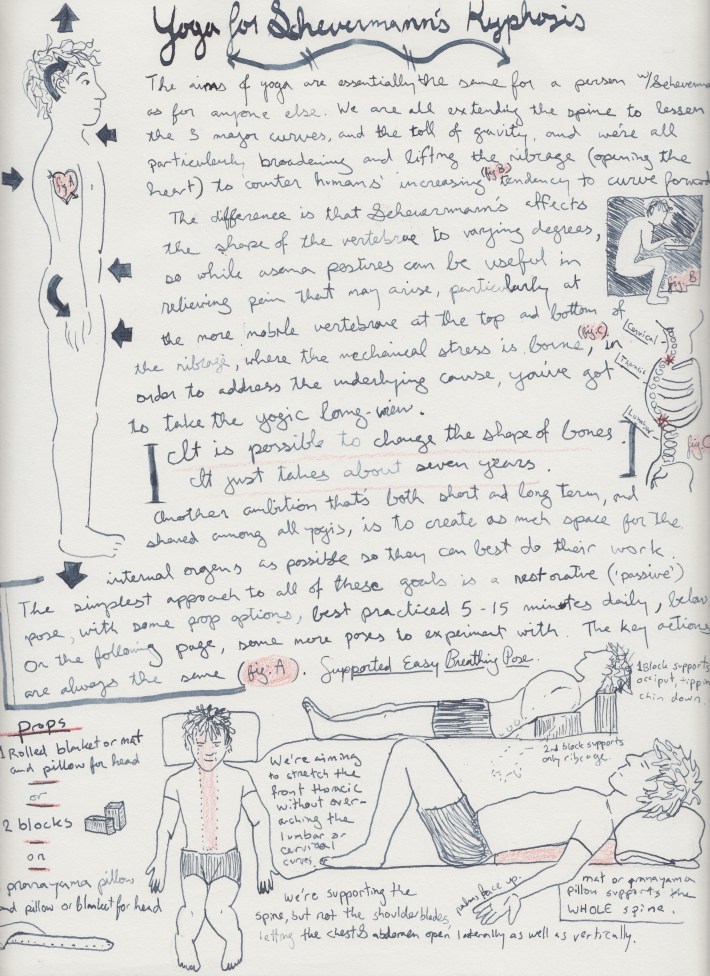 Yoga for Scheuermann's Kyphosis
The aims of yoga are essentially the same for a person w/Scheuerma
as for anyone else. We are all extending the spine to lessen
the 3 major curves, and the toll of gravity, and we're all
particularly broadening and lifting the ribcage (opening the
heart) to counter humans' increasing (fig. B) tendency to curve forward
fig. A
The difference is that Scheuermann's affects
the shape of the vertebrae to varying degrees,
so while asana postures can be useful in
relieving pain that may arise, particularly at
the more mobile vertebrae at the top and bottom of
the ribcage, where the mechanical stress is borne, (fig. C) in
order to address the underlying cause, you've got
to take the yogic long-view.
fig. B
Cervical
Thoracic
Lumbar
fig. C
It is possible to change the shape of bones.
It just takes about seven years.
Another ambition that's both short and long term, and
shared among all yogis, is to create as much space for the
internal organs as possible so they can best do their work.
The simplest approach to all of these goals is a restorative ('passive')
pose, with some prop options, best practiced 5-15 minutes daily, below
On the following page, some more poses to experiment with. The key actions
are always the same (fig. A). Supported Easy Breathing Pose.
1 Block supports
occiput, tipping
chin down.
2nd block supports
only ribcage.
Props
1 Rolled blanket or mat
and pillow for head
or
2 blocks
or
pranayama pillow
and pillow or blanket for head
We're aiming
to stretch the
front thoracic
without over-
arching the
lumbar or
cervical
curves.
palms face up.
mat or pranayama
pillow supports the
WHOLE spine.
We're supporting the
spine, but not the shoulderblades,
letting the chest & abdomen open laterally as well as vertically.